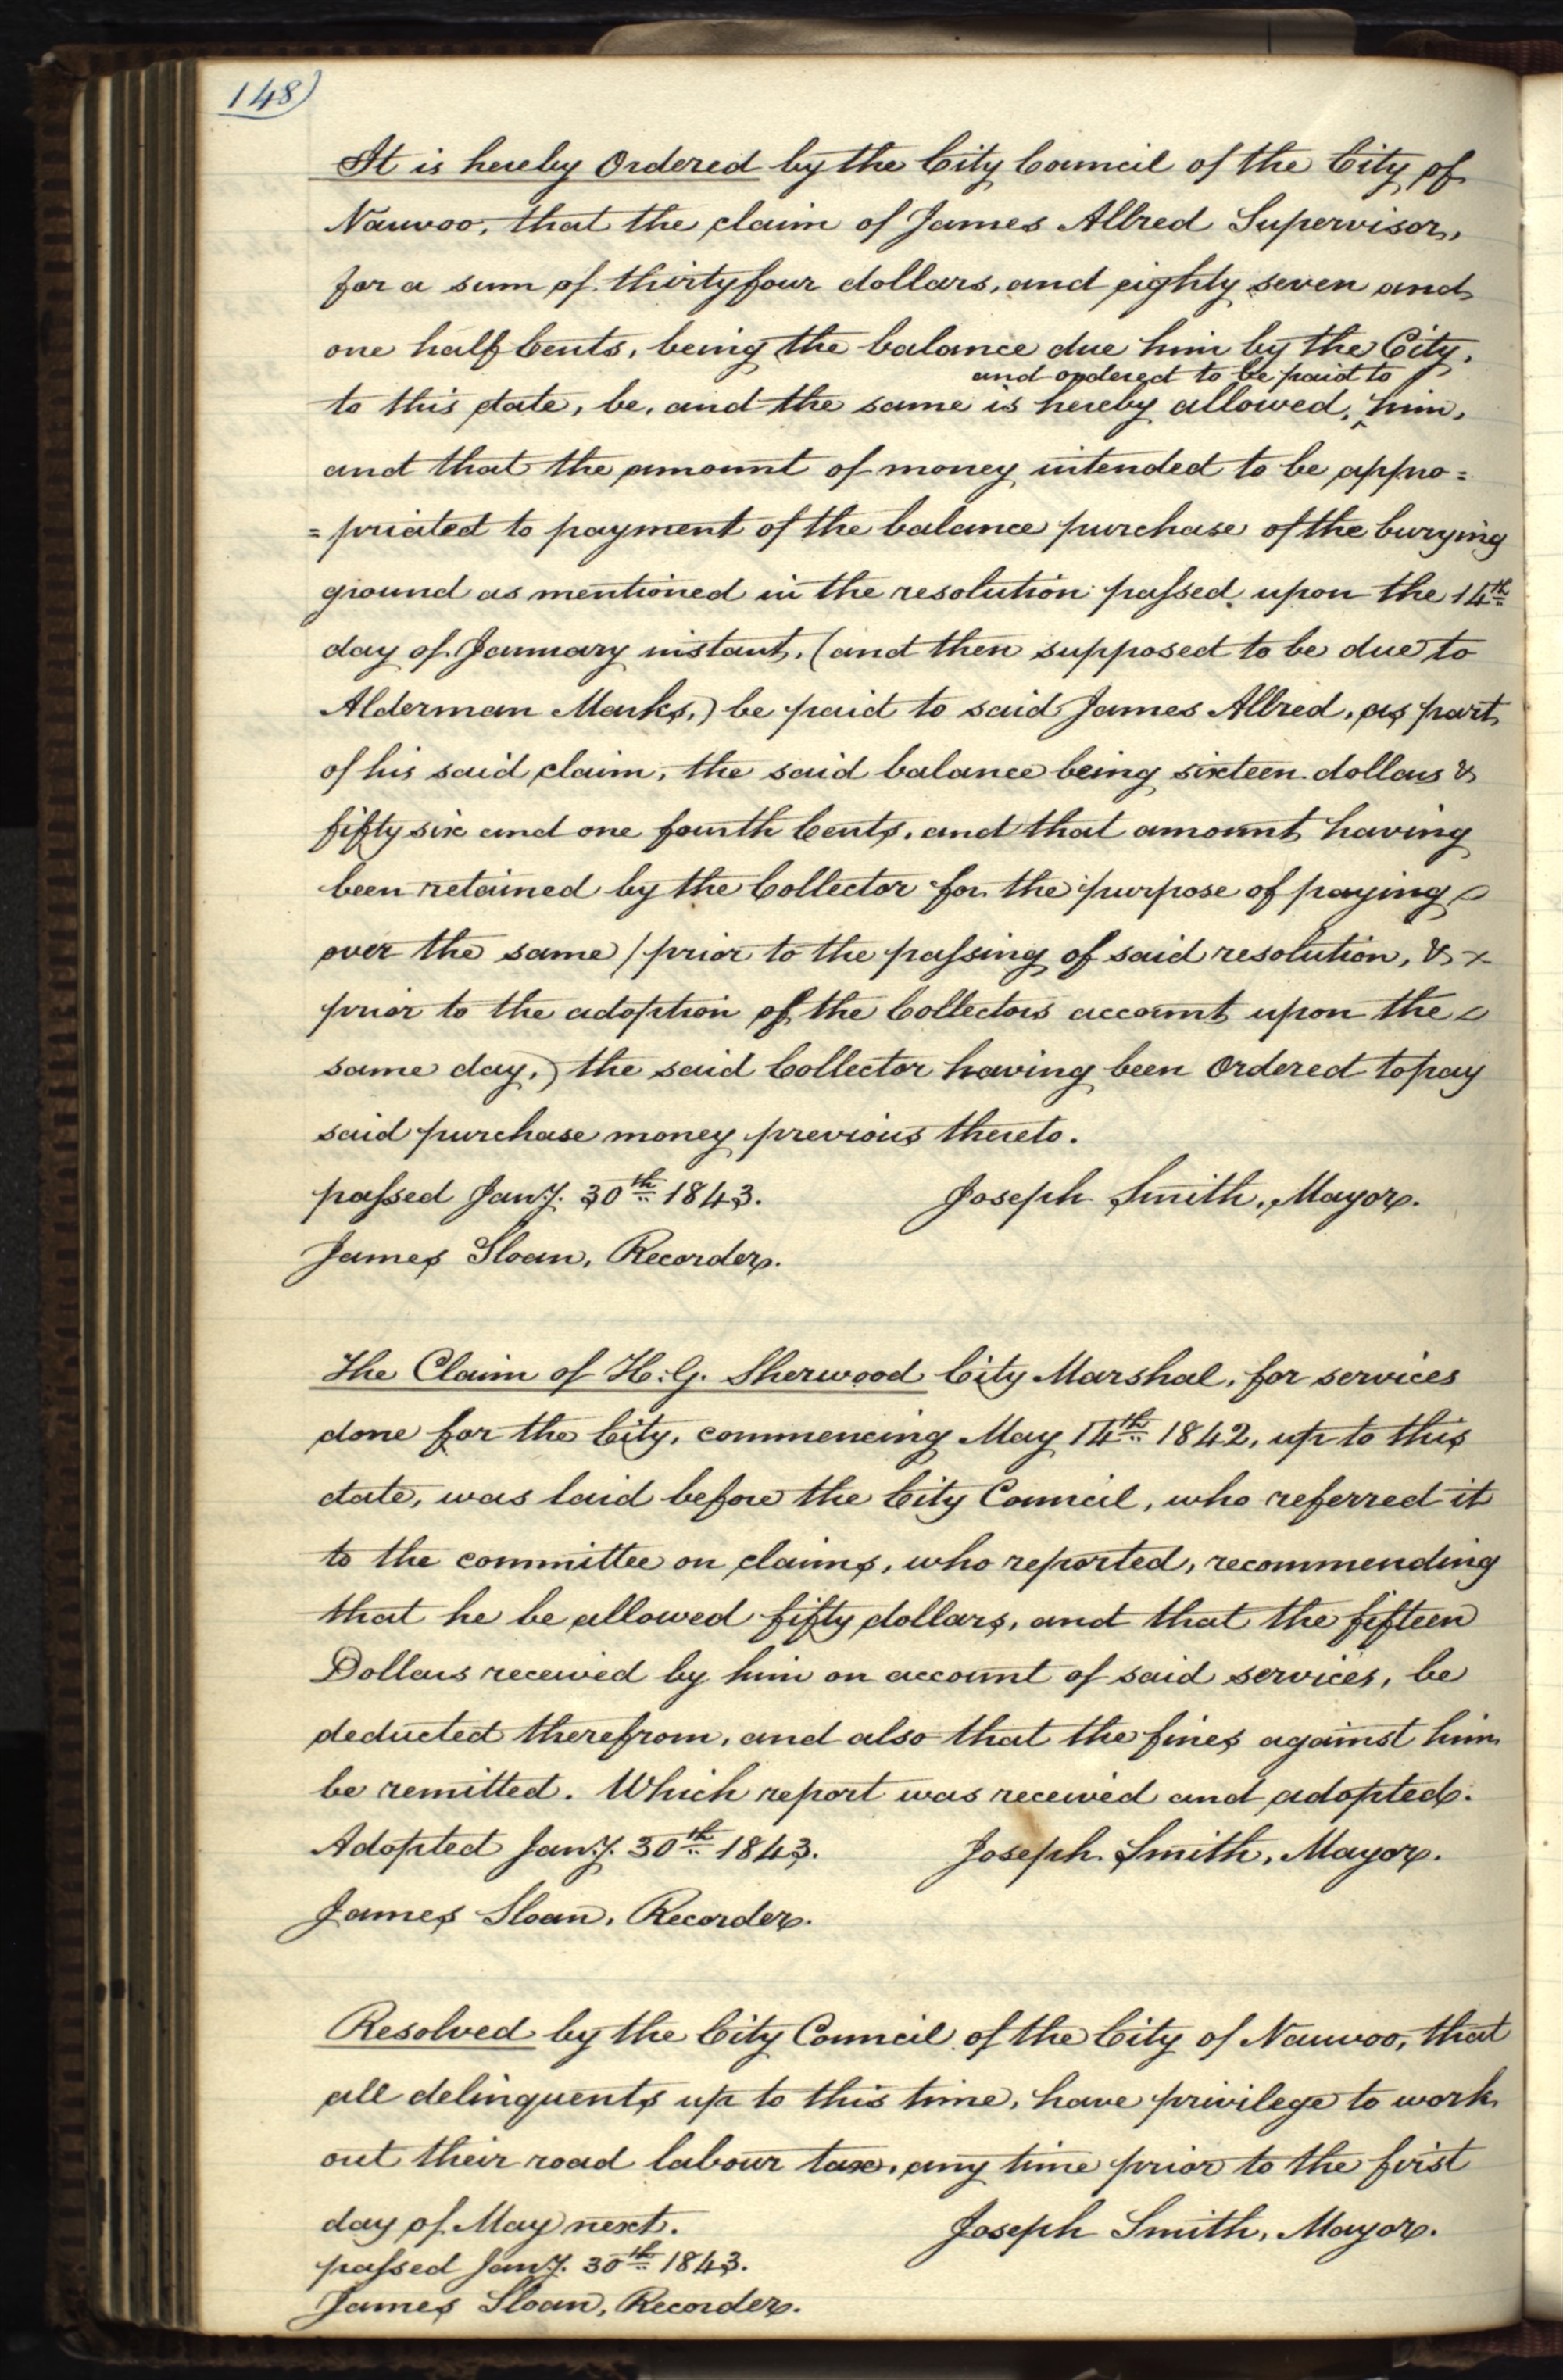 148)
It is hereby Ordered by the City Council of the City of
Nauvoo, that the claim of James Allred Supervisor,
for a sum of thirtyfour dollars, and eighty seven and
one half Cents, being the balance due him by the City,
and ordered to be paid to
to this date, be, and the same is hereby allowed, ‸ him,
and that the amount of money intended to be appro=
=priated to payment of the balance purchase of the burying
ground as mentioned in the resolution passed upon the 14th
day of January instant, (and then supposed to be due to
Alderman Marks,) be paid to said James Allred, as part
of his said claim, the said balance being sixteen dollars &
fifty six and one fourth Cents, and that amount having
been retained by the Collector for the purpose of paying
over the same (prior to the passing of said resolution, &
prior to the adoption of the Collectors account upon the
same day,) the said Collector having been Ordered to pay
said purchase money previous thereto.
passed Jany. 30th 1843. Joseph Smith, Mayor.
James Sloan, Recorder.
The Claim of H. G. Sherwood City Marshal, for services
done for the City, commencing May 14th 1842, up to this
date, was laid before the City Council, who referred it
to the committee on claims, who reported, recommending
that he be allowed fifty dollars, and that the fifteen
Dollars received by him on account of said services, be
deducted therefrom, and also that the fines against him
be remitted. Which report was received and adopted.
Adopted Jany. 30th 1843. Joseph Smith, Mayor.
James Sloan, Recorder.
Resolved by the City Council of the City of Nauvoo, that
all delinquents up to this time, have privilege to work
out their road labour tax, any time prior to the first
day of May next. Joseph Smith, Mayor.
passed Jany. 30th 1843.
James Sloan, Recorder.